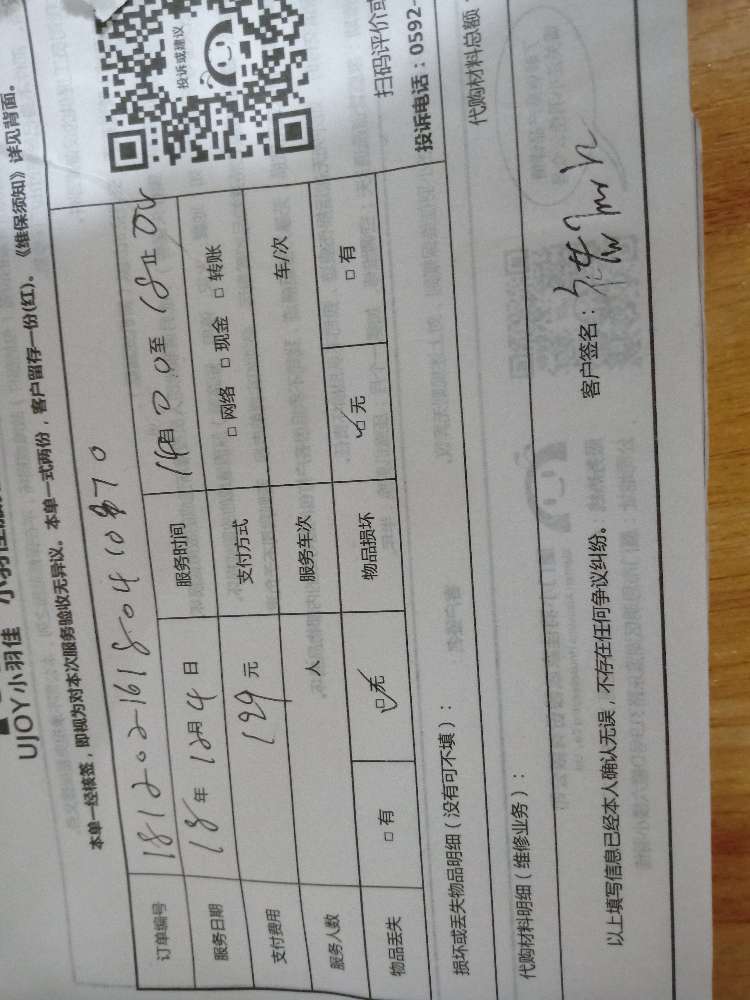 UJOY小羽佳
本单一经核签，即视为对本次服务验收无异议。本单一式两份，客户留存一份(红)。《维保须知》详见背面。
订单编号 181202-161804
服务日期 18年12月4日 服务时间 14时00至18止00
支付费用 199元 支付方式 □网络 □现金 □转账
服务人数 人 服务车次 车/次
物品丢失 □有 ☑无 物品损坏 ☑无 □有
损坏或丢失物品明细（没有可不填）：
代购材料明细（维修业务）： 代购材料总额
以上填写信息已经本人确认无误，不存在任何争议纠纷。 客户签名：
投诉或建议
扫码评价或
投诉电话：0592-